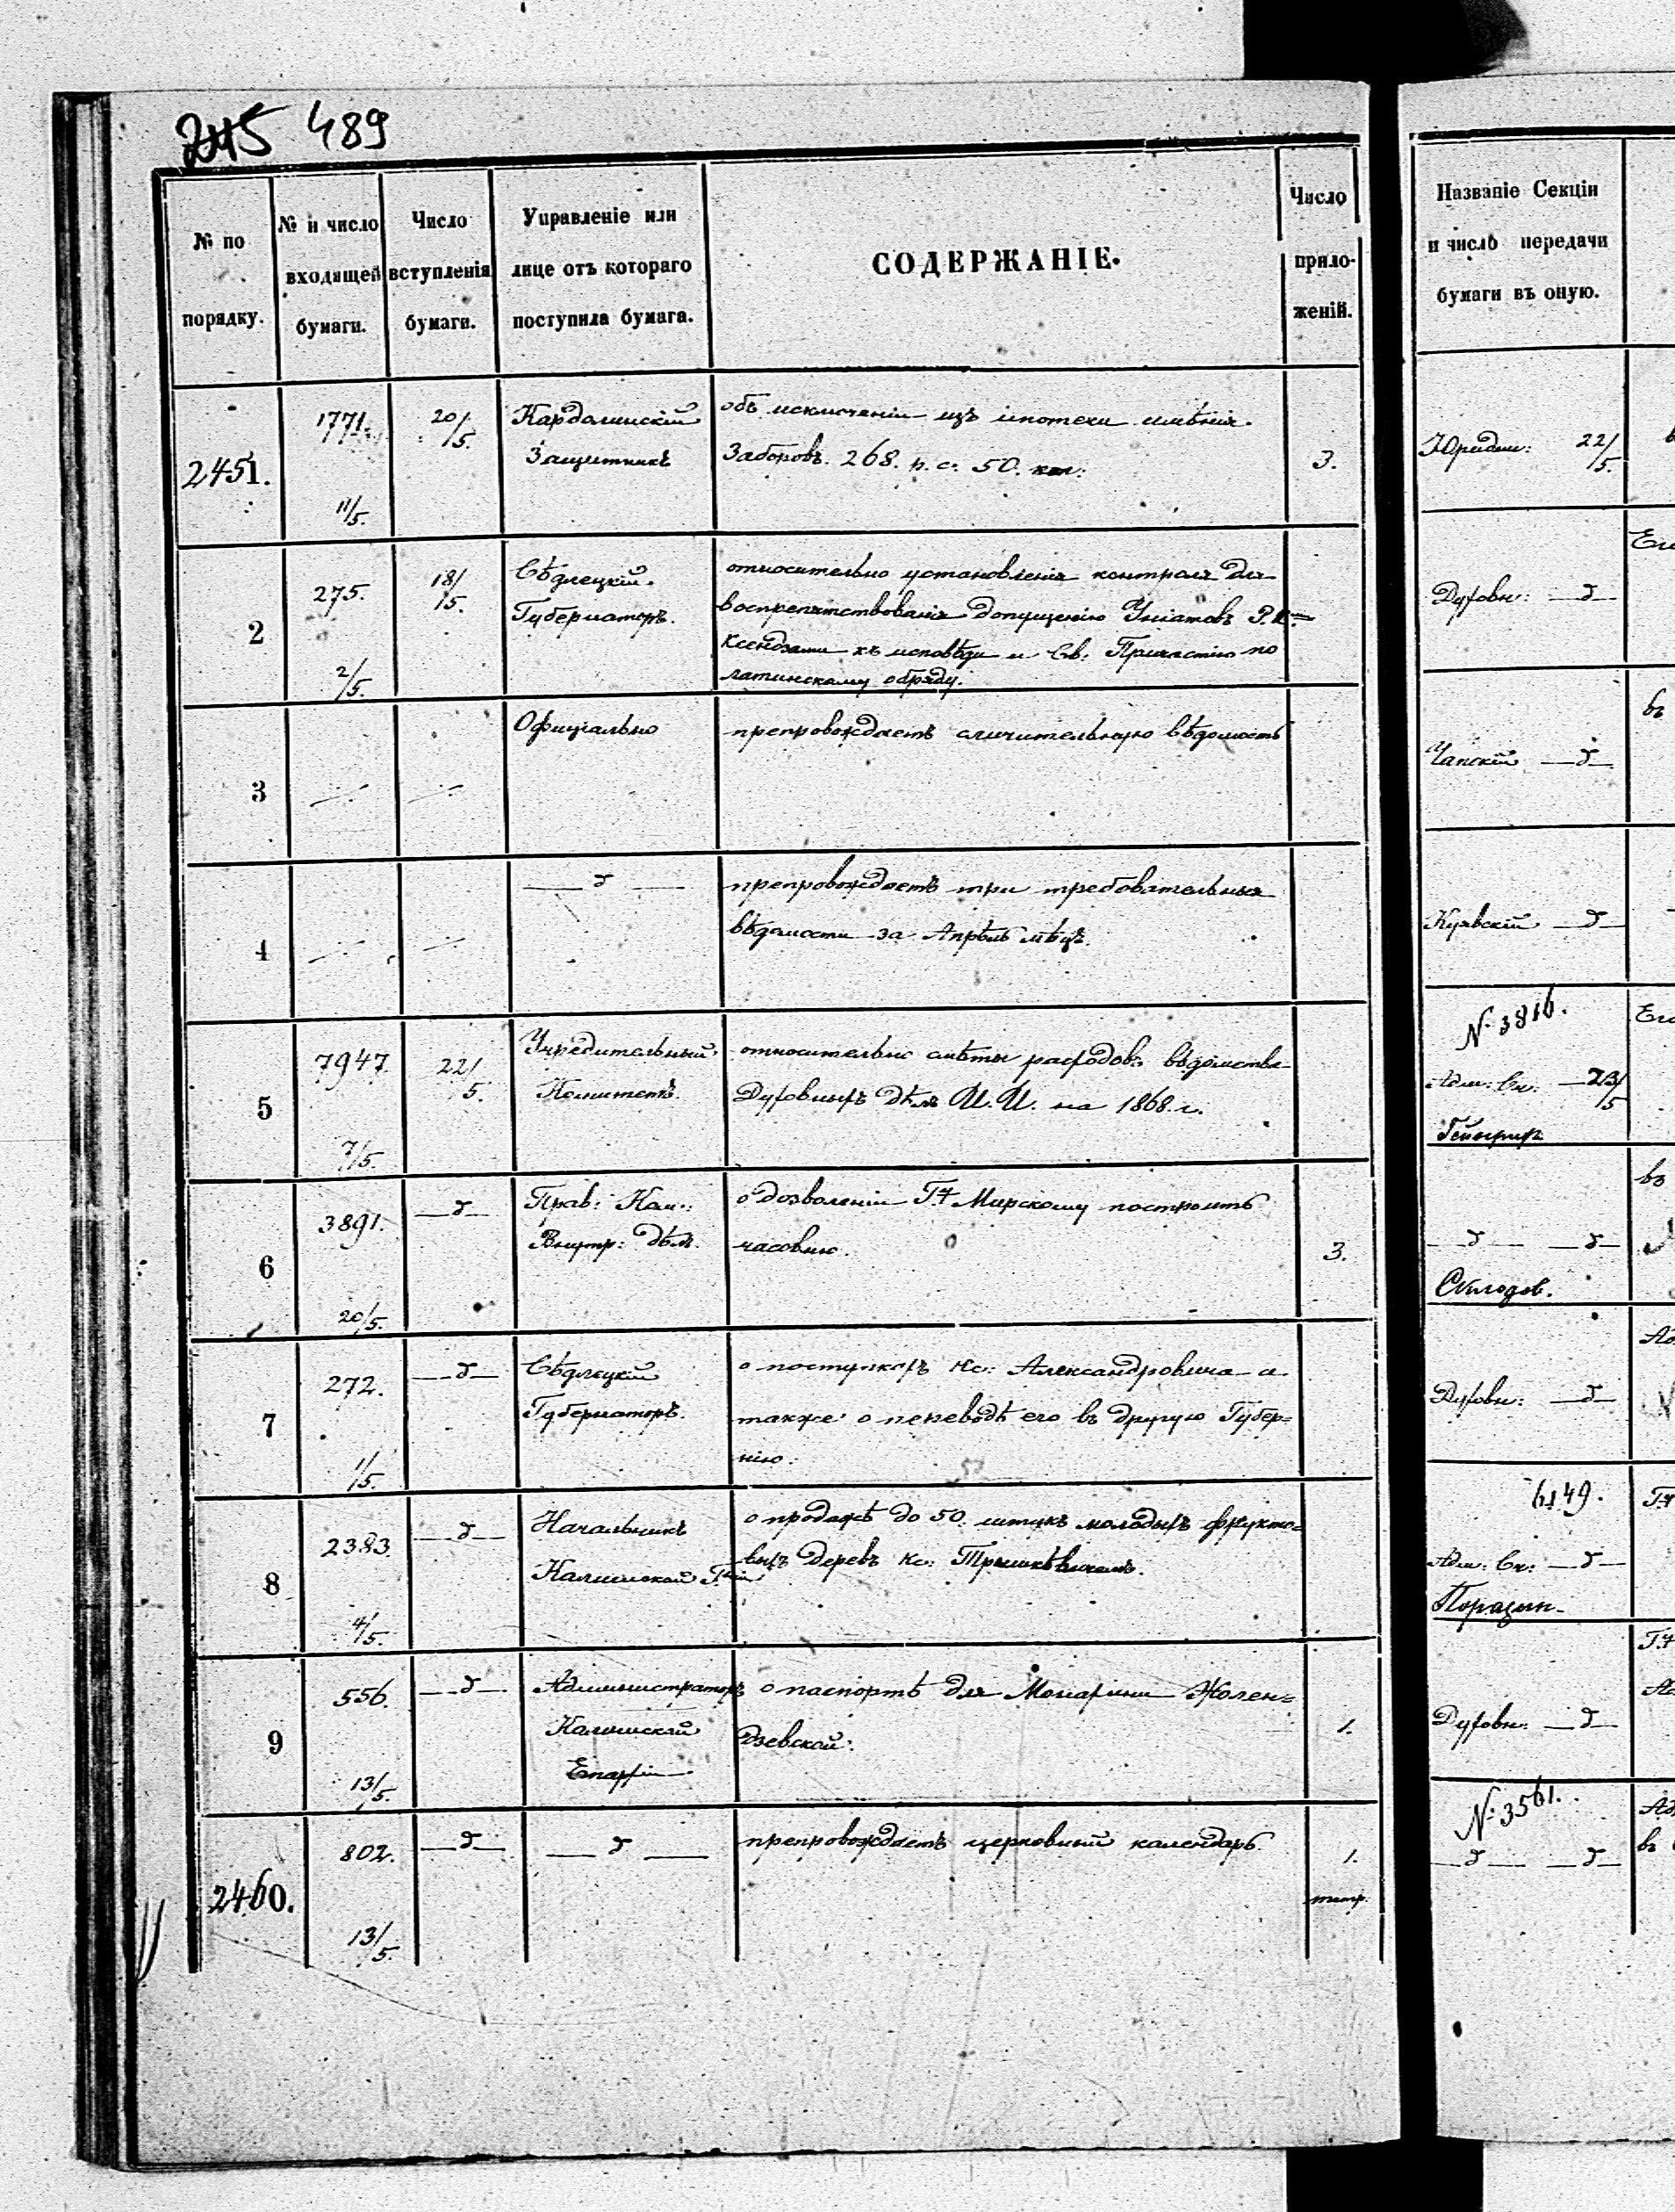 245 489
№ по порядку.
№ и число входящей бумаги.
Число вступленія бумаги.
Управленіе или лице отъ котораго поступила бумага.
СОДЕРЖАНІЕ.
Число приложеній.
Названіе Секціи
и число передачи
бумаги въ оную.
2451.
1771.
11/5.
20/5.
Кардолинскій
Защитникъ
объ исключеніи изъ ипотеки имѣнія
Заборовъ. 268. р. с. 50. коп.
3.
Юридич: 22/5.
2
275.
2/5.
18/5.
Сѣдлецкій
Губернаторъ.
относительно установленія контроля для
воспрепятствованія допущенію Уніатовъ Р. К=
Ксендзами къ исповѣди и Св. Причастію по
латинскому обряду.
Духовн: —д—
3
Офиціально
препровождаетъ сличительную вѣдомость
Чапскій —д—
4
—д—
препровождаетъ три требовательныя
вѣдомости за Апрѣль мѣцъ.
Куявскій —д—
5
7947
7/5.
22/5.
Учредительный
Комитетъ.
относительно смѣты расходовъ вѣдомства
Духовныхъ дѣлъ И. И. на 1868. г.
№ 3816.
Адм: Ск: 23/5
6
3891.
20/5.
—д—
Прав: Ком:
Внутр: дѣлъ.
о дозволеніи Г.+ Мирскому построить
часовню.
3.
—д— —д—
Склодов.
7
272.
1/5.
—д—
Сѣдлецкій
Губернаторъ.
о поступкахъ Кс: Александровича а
также о переводѣ его въ другую Губер=
нію.
Духовн: —д—
8
2383.
4/5.
—д—
Начальникъ
Калишской Г-ніи
о продажѣ до 50. штукъ молодыхъ фрукто=
выхъ деревъ Кс:
6149.
Адм: Ск: —д—
9
556.
13/5.
—д—
Администраторъ
Калишской
Епархіи
о паспортѣ для Монахини Жолен=
дзевской.
1.
Духовн: —д—
2460.
802.
13/5.
—д—
—д—
препровождаетъ церковный календарь.
1.
№ 3561.
—д— —д—